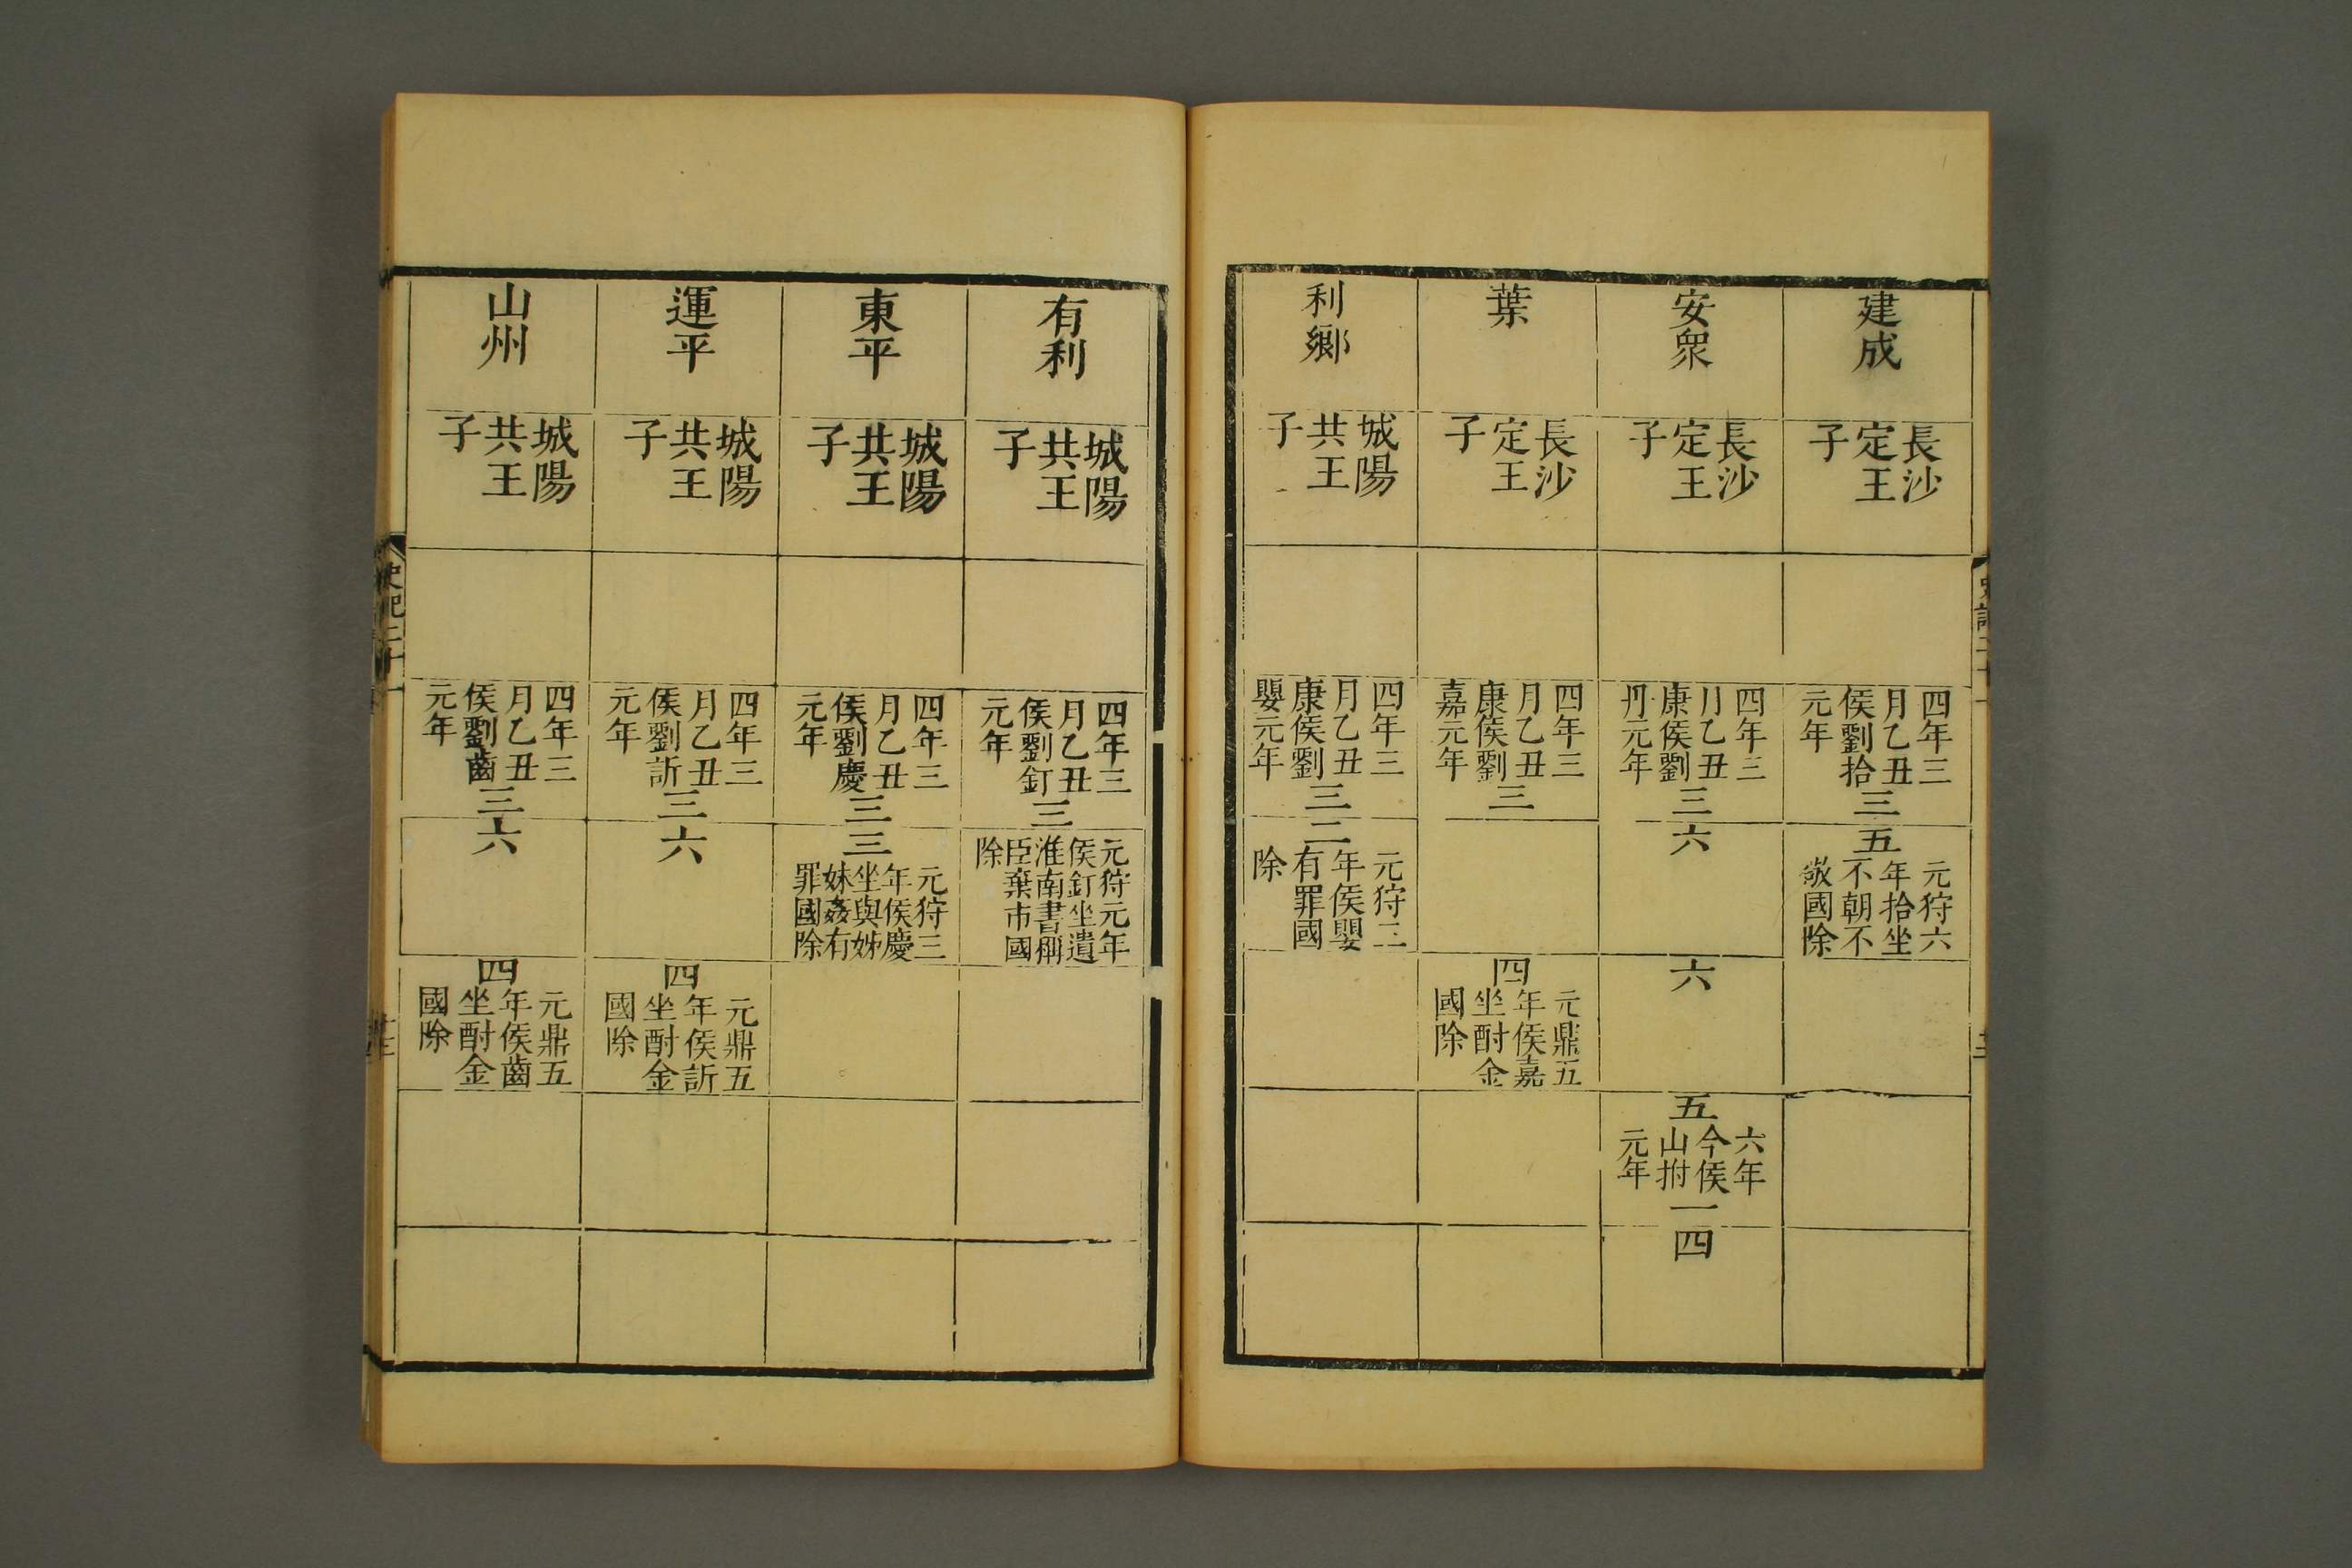 建成
長沙
定王
子
四年三
月乙丑
侯劉拾
元年
三
五
元狩六
年拾坐
不朝不
敬國除
安衆
長沙
定王
子
四年三
月乙丑
康侯劉
丹元年
三
六
六
五
六年
今侯
山拊
元年
一
四
葉
長沙
定王
子
四年三
月乙丑
康侯劉
嘉元年
三
四
元鼎五
年侯嘉
坐酎金
國除
利鄉
城陽
共王
子
四年三
月乙丑
康侯劉
嬰元年
三
二
元狩三
年侯嬰
有罪國
除
有利
城陽
共王
子
四年三
月乙丑
侯劉釘
元年
三
元狩元年
侯釘坐遺
淮南書稱
臣棄市國
除
東平
城陽
共王
子
四年三
月乙丑
侯劉慶
元年
三
三
元狩三
年侯慶
坐與姊
妹姦有
罪國除
運平
城陽
共王
子
四年三
月乙丑
侯劉訢
元年
三
六
四
元鼎五
年侯訢
坐酎金
國除
山州
城陽
共王
子
四年三
月乙丑
侯劉齒
元年
三
六
四
元鼎五
年侯齒
坐酎金
國除
史記二十一